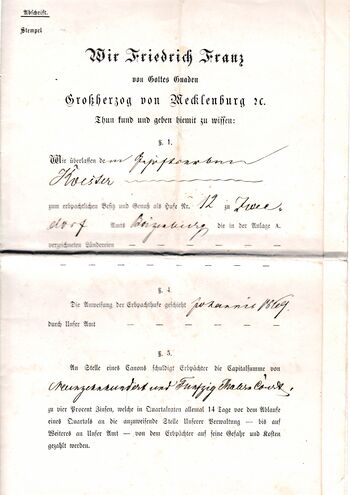 Abschrift.
Stempel
Wir Friedrich Franz
von Gottes Gnaden
Großherzog von Mecklenburg ꝛc.
Thun kund und geben hiemit zu wissen:
§. 1.
Wir überlassen dem
zum erbpachtlichen Besitz und Genuß als Hufe Nr. 12 zu Zwee-
dorf Amts Boizenburg, die in der Anlage A.
verzeichneten Ländereien
§. 4.
Die Anweisung der Erbpachthufe geschieht Johannis 1869.
durch Unser Amt
§. 5.
An Stelle eines Canons schuldigt Erbpächter die Capitalsumme von
Neunzehnhundert und Fünfzig Thalern Cour.
zu vier Procent Zinsen, welche in Quartalraten allemal 14 Tage vor dem Ablaufe
eines Quartals an die anzuweisende Stelle Unserer Verwaltung — bis auf
Weiteres an Unser Amt — von dem Erbpächter auf seine Gefahr und Kosten
gezahlt werden.